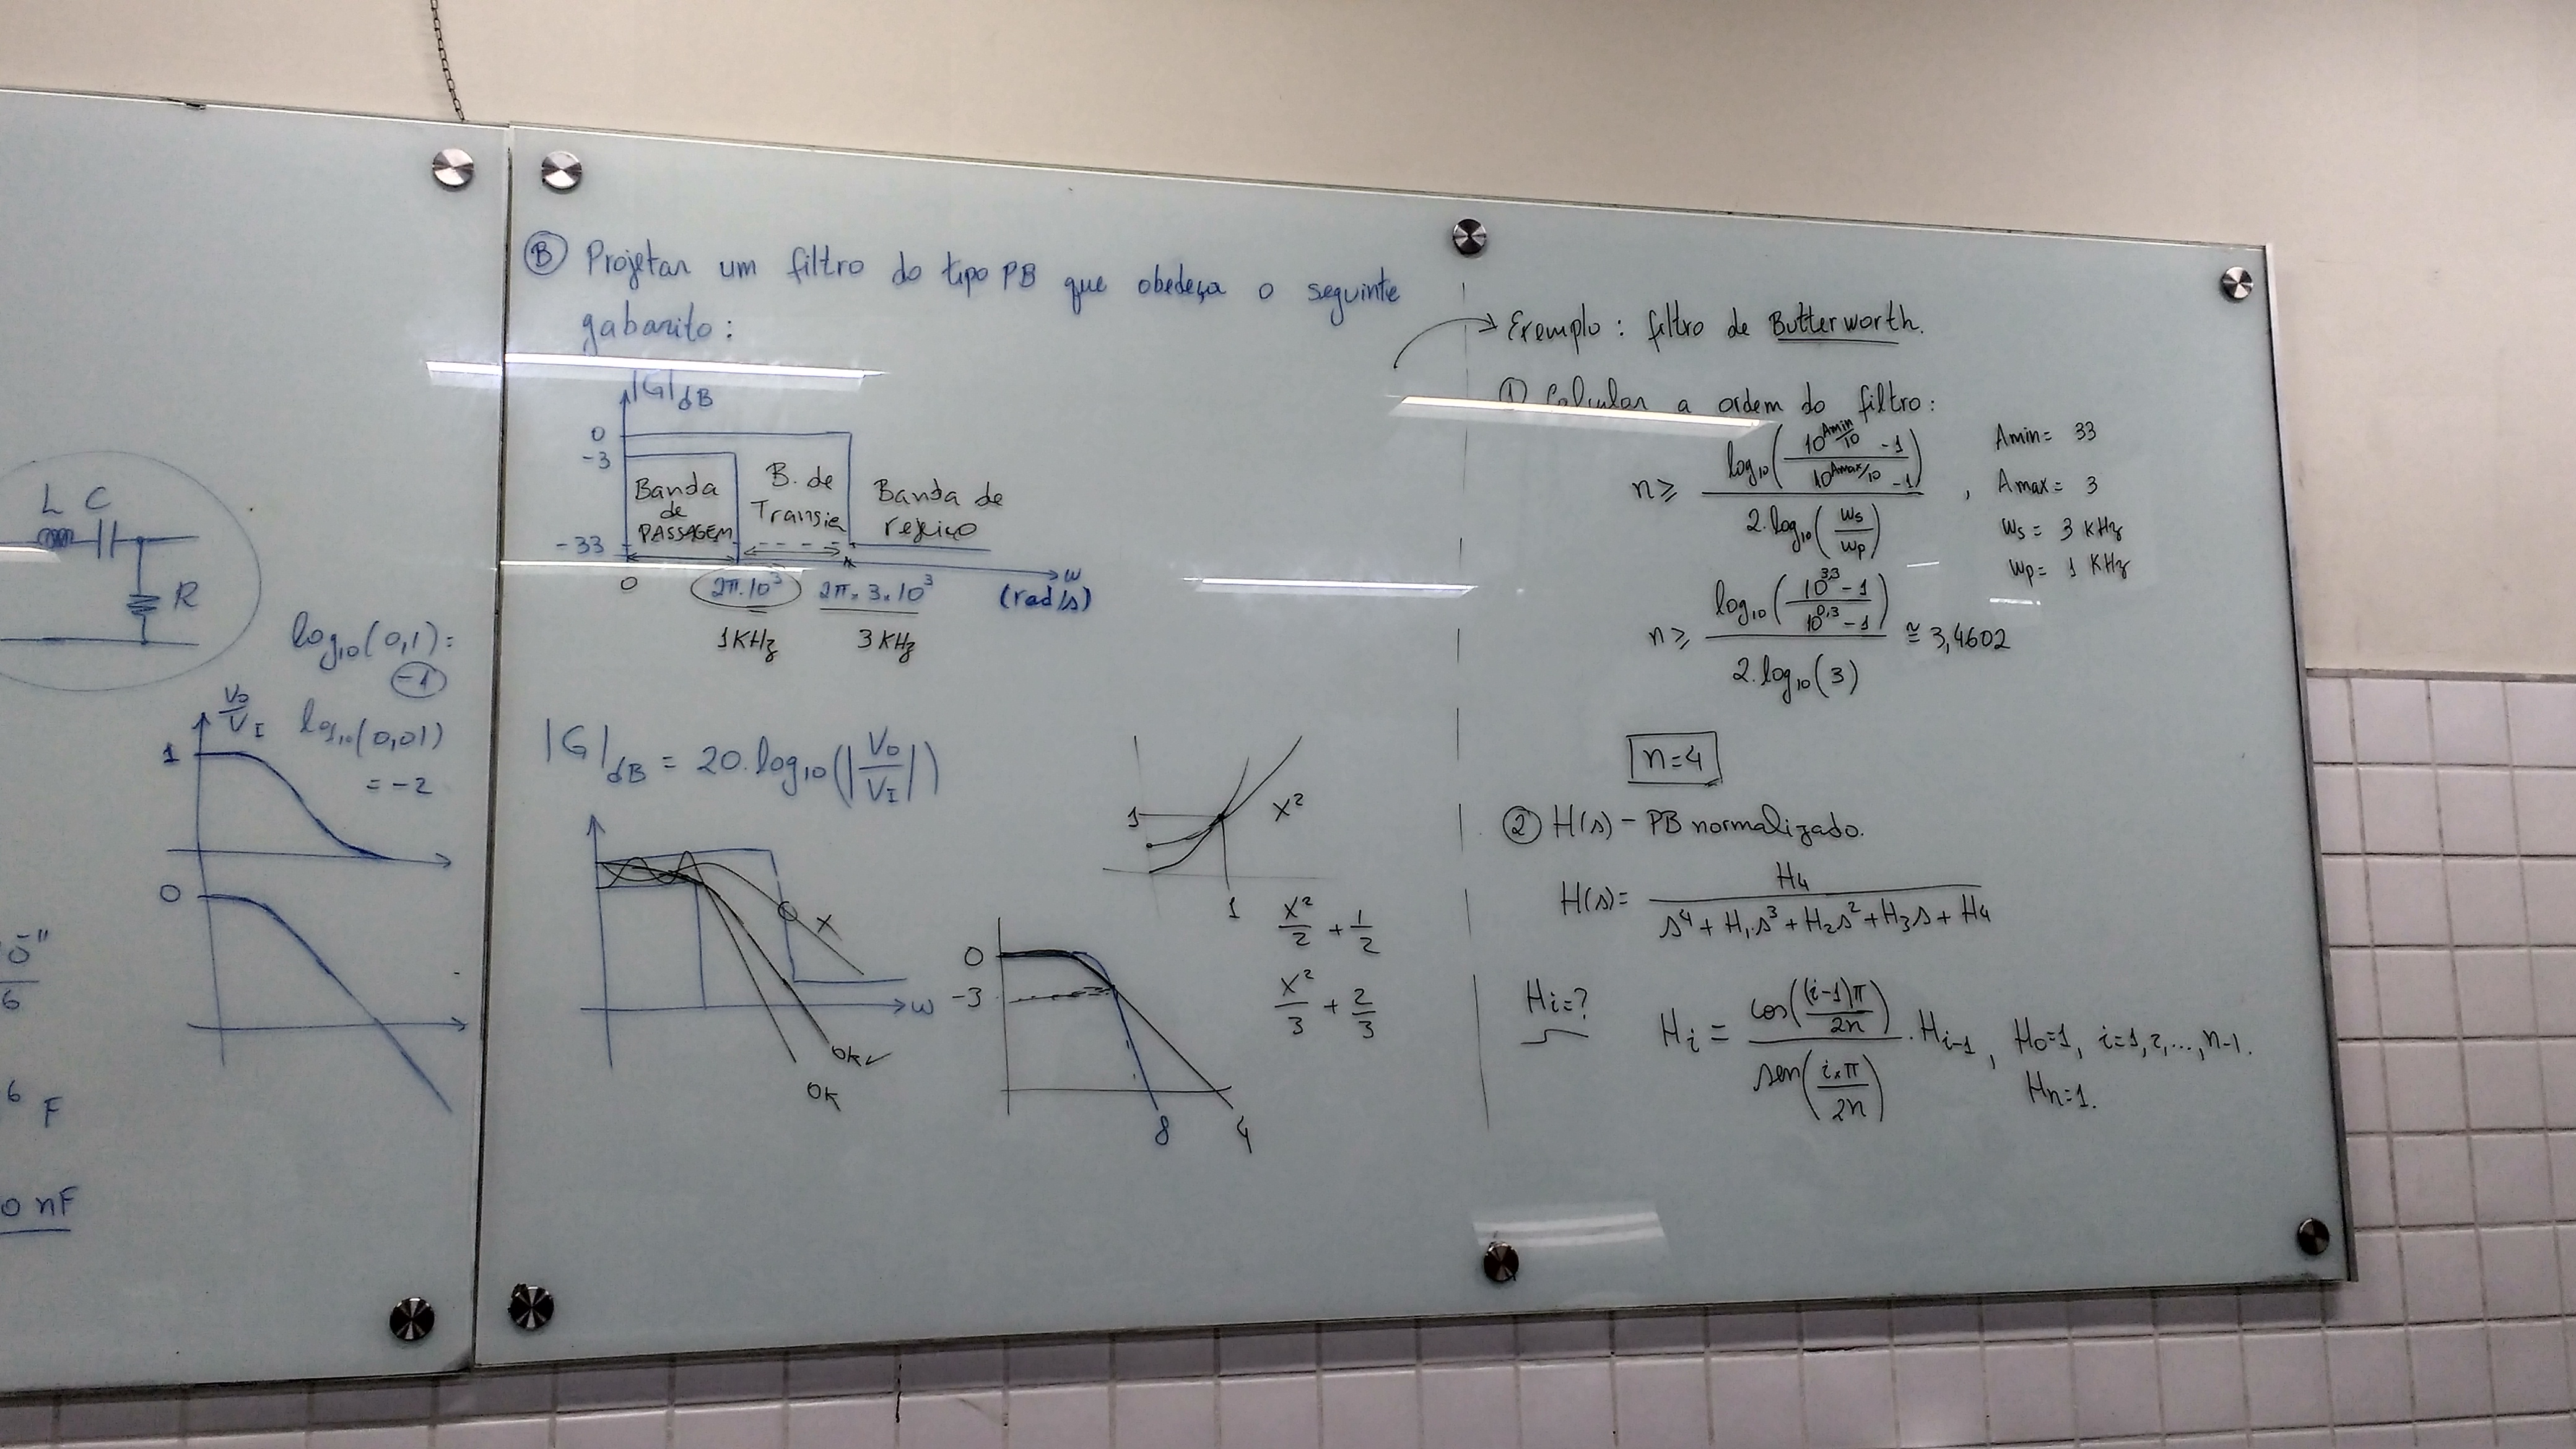 L C
R
log₁₀(0,1):
-1
V₀/V_I
log₁₀(0,01)
= -2
1
0
6
6 F
0 nF
Ⓑ Projetar um filtro do tipo PB que obedeça o seguinte
gabarito:
|G|dB
0
-3
-33
Banda
de
PASSAGEM
B. de
Transiç
Banda de
rejeiço
0
2π.10³
2π.3.10³
ω
(rad/s)
1KHz
3KHz
|G|dB = 20.log₁₀(|V₀/V_I|)
X
ω
OK✓
OK
1
X²
1
X²/2 + 1/2
X²/3 + 2/3
0
-3
8
4
→ Exemplo: filtro de Butterworth.
① Calcular a ordem do filtro:
n ≥ log₁₀((10^(Amin/10) - 1)/(10^(Amax/10) - 1)) / (2.log₁₀(ws/wp)) ,
Amin= 33
Amax= 3
ws= 3 KHz
wp= 1 KHz
n ≥ log₁₀((10^3,3 - 1)/(10^0,3 - 1)) / (2.log₁₀(3)) ≅ 3,4602
n=4
② H(s) - PB normalizado.
H(s)= H₄ / (s⁴ + H₁.s³ + H₂s² + H₃s + H₄)
Hi=?
Hi = cos((i-1)π/2n) / sen(i.π/2n) . Hi-1 , H₀=1, i=1,2,...,n-1.
Hn=1.